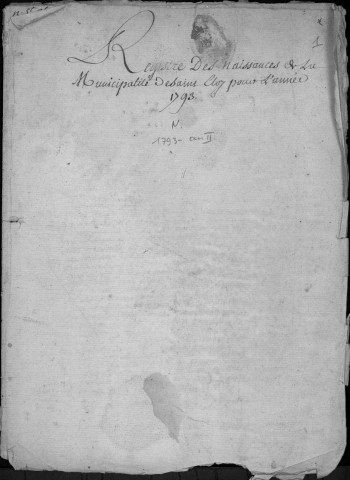 1
Registre Des naissances de La
Municipalité de saint Eloy pour L'année
1793.
N.
1793 - an II